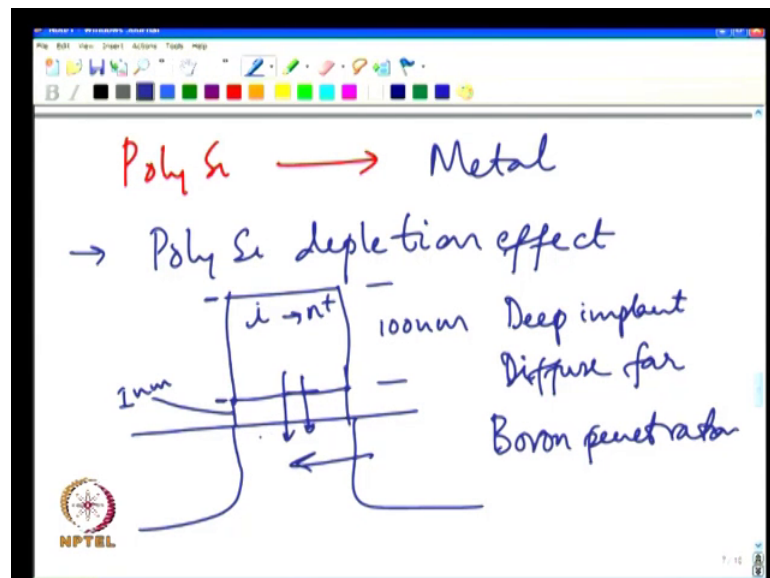 Note1 - Windows Journal
File Edit View Insert Actions Tools Help
B I
Poly Si → Metal
→ Poly Si depletion effect
i → n+
100nm Deep implant
Diffuse far
1nm
Boron penetration
NPTEL